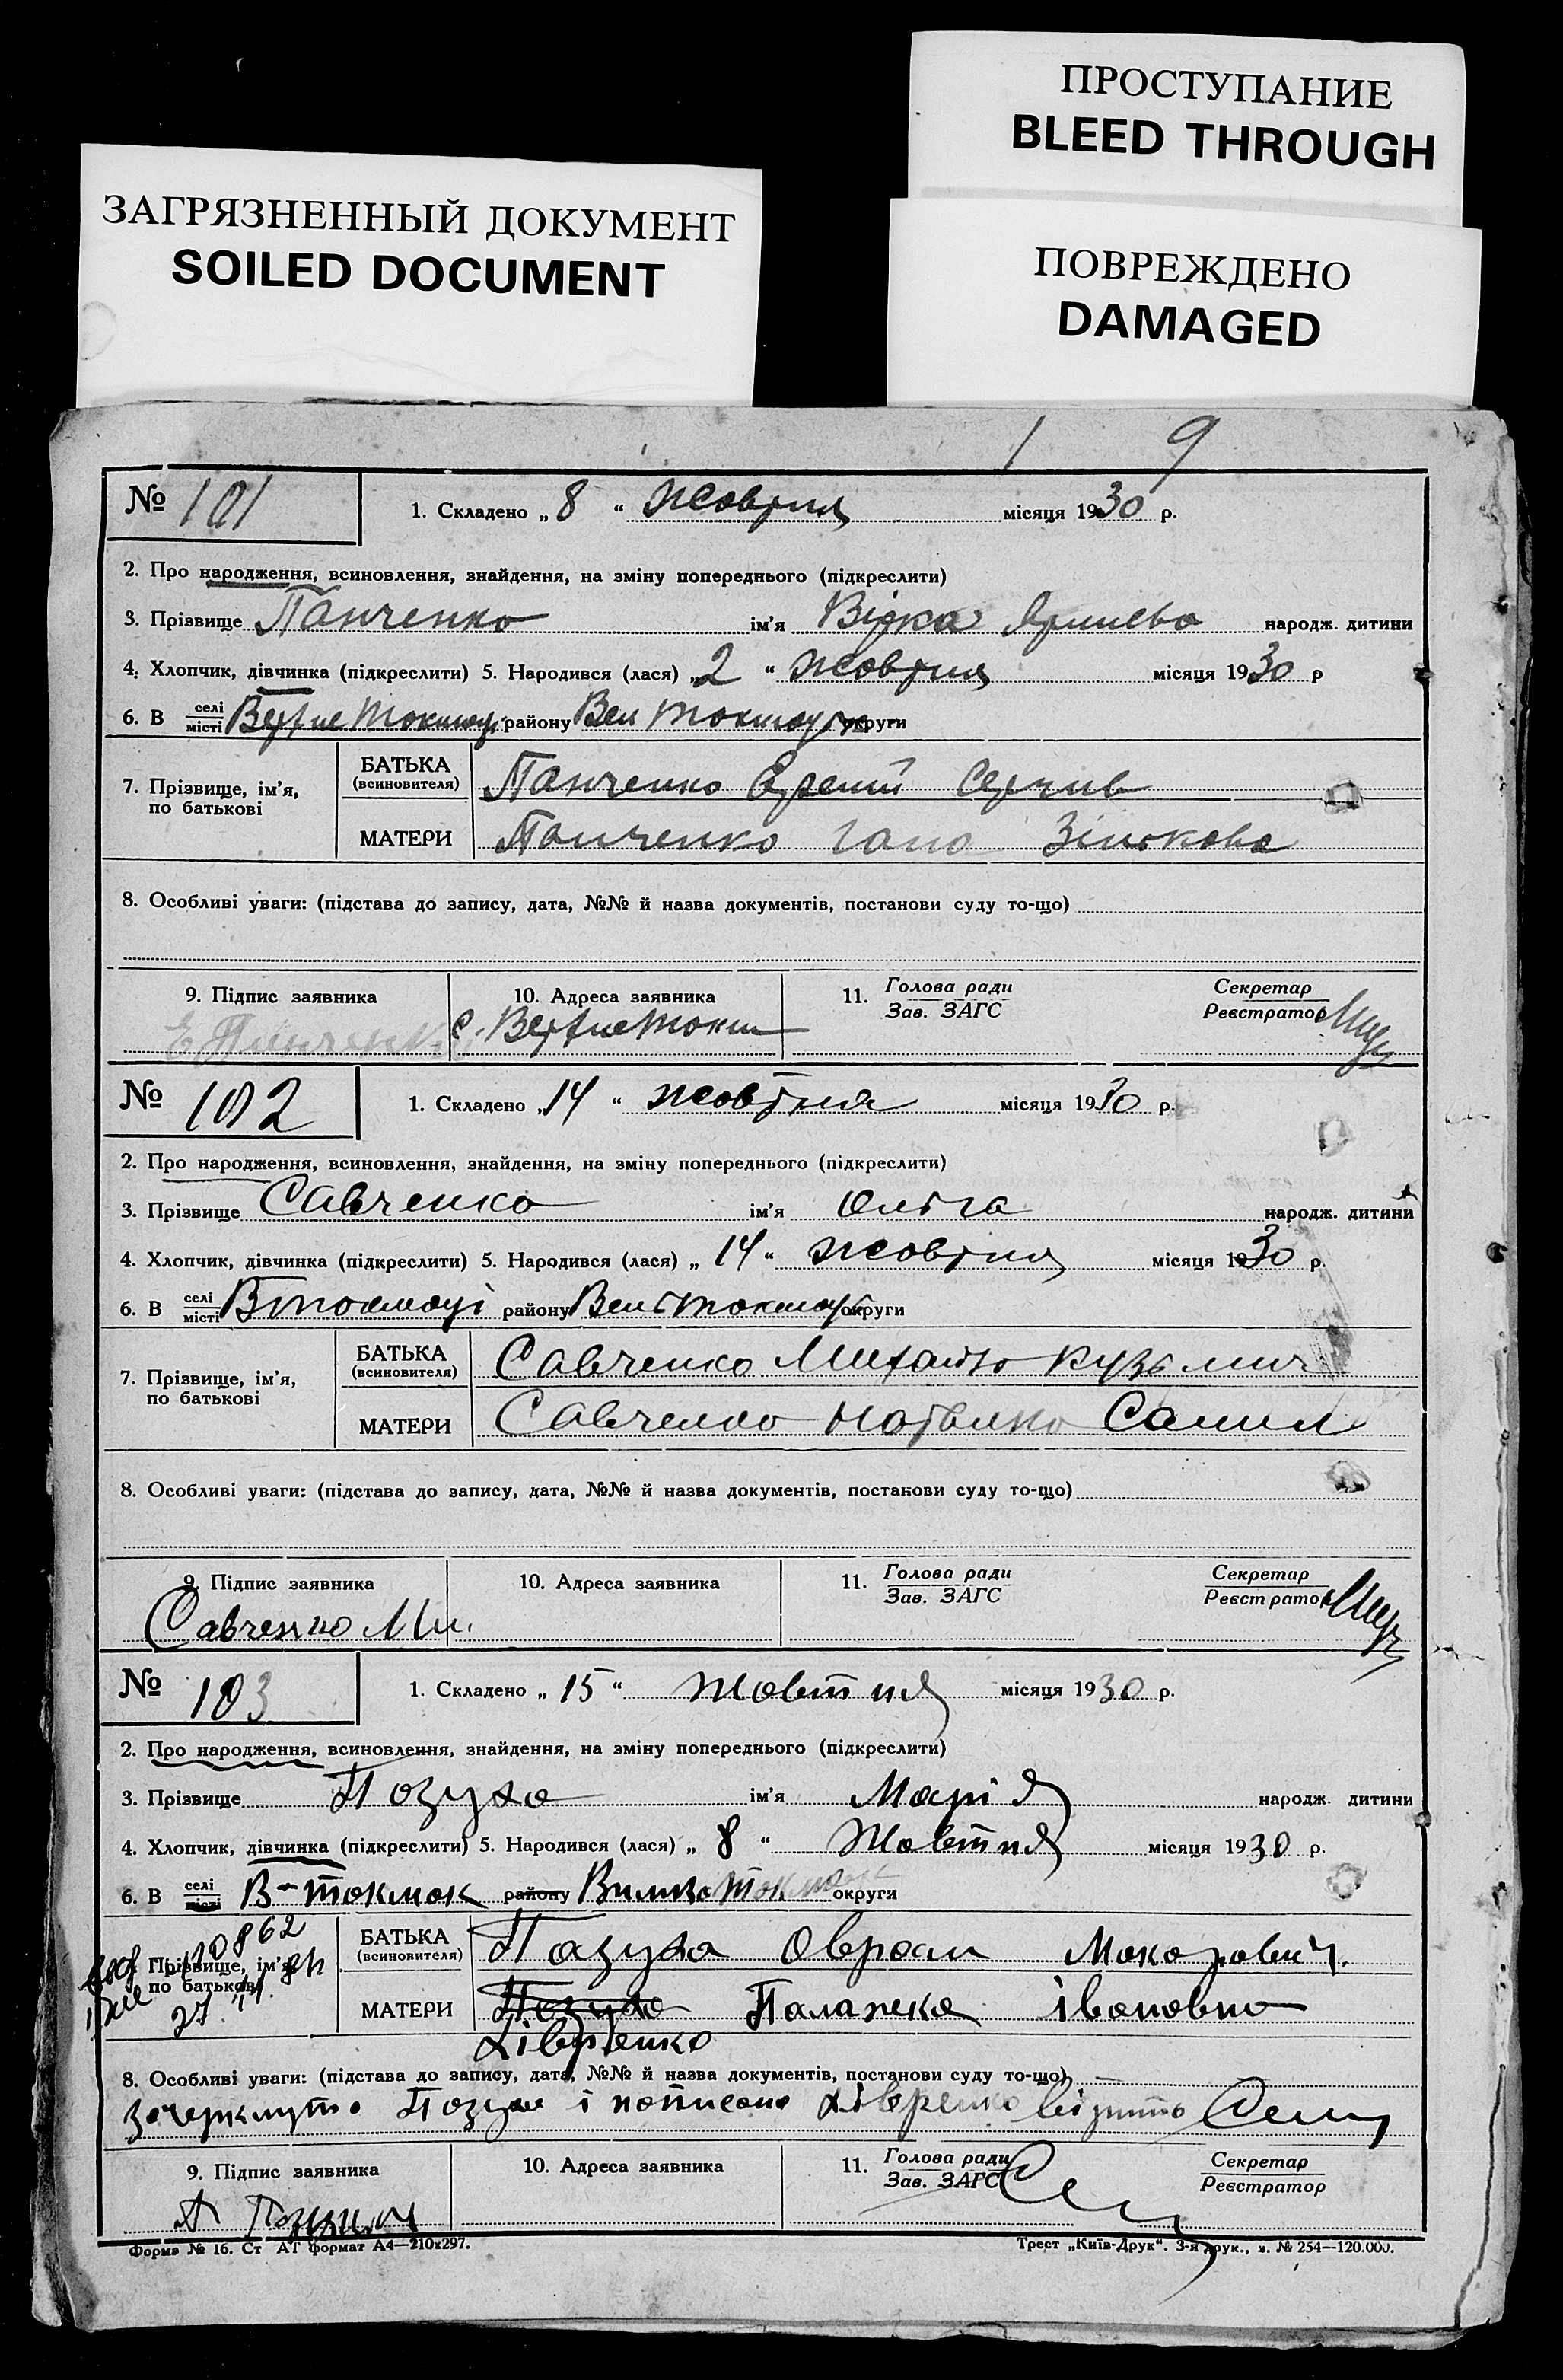 ПРОСТУПАНИЕ
BLEED THROUGH
ЗАГРЯЗНЕННЫЙ ДОКУМЕНТ
SOILED DOCUMENT
ПОВРЕЖДЕНО
DAMAGED
1 9
№ 101 1. Складено „ 8 “ жовтня місяця 1930 р.
2. Про народження, всиновлення, знайдення, на зміну попереднього (підкреслити)
3. Прізвище Панченко ім'я народж. дитини
4. Хлопчик, дівчинка (підкреслити) 5. Народився (лася) „ 2 “ жовтня місяця 1930 р
6. В селі/місті району Вел округи
7. Прізвище, ім'я, по батькові
БАТЬКА (всиновителя) Панченко
МАТЕРИ Панченко Гана Зінькова
8. Особливі уваги: (підстава до запису, дата, №№ й назва документів, постанови суду то-що)
9. Підпис заявника 10. Адреса заявника 11. Голова ради/Зав. ЗАГС Секретар/Реєстратор
Е Панченко с.
№ 102 1. Складено „ 14 “ жовтня місяця 1930 р.
2. Про народження, всиновлення, знайдення, на зміну попереднього (підкреслити)
3. Прізвище Савченко ім'я Ольга народж. дитини
4. Хлопчик, дівчинка (підкреслити) 5. Народився (лася) „ 14 “ жовтня місяця 1930 р.
6. В селі/місті Втокмаці району округи
7. Прізвище, ім'я, по батькові
БАТЬКА (всиновителя) Савченко Михайло Кузьмич
МАТЕРИ Савченко
8. Особливі уваги: (підстава до запису, дата, №№ й назва документів, постанови суду то-що)
9. Підпис заявника 10. Адреса заявника 11. Голова ради/Зав. ЗАГС Секретар/Реєстратор
Савченко Ми.
№ 103 1. Складено „ 15 “ жовтня місяця 1930 р.
2. Про народження, всиновлення, знайдення, на зміну попереднього (підкреслити)
3. Прізвище Позуха ім'я Марія народж. дитини
4. Хлопчик, дівчинка (підкреслити) 5. Народився (лася) „ 8 “ жовтня місяця 1930 р.
6. В селі/місті В-токмак району округи
7. Прізвище, ім'я, по батькові
БАТЬКА (всиновителя) Пазуха Овраам Макарович.
МАТЕРИ Позуха Палажка івановна
8. Особливі уваги: (підстава до запису, дата, №№ й назва документів, постанови суду то-що)
зачеркнуто і
9. Підпис заявника 10. Адреса заявника 11. Голова ради/Зав. ЗАГС Секретар/Реєстратор
Форма № 16. Ст АТ формат А4—210x297. Трест „Київ-Друк“. 3-я друк., з. № 254—120.000.